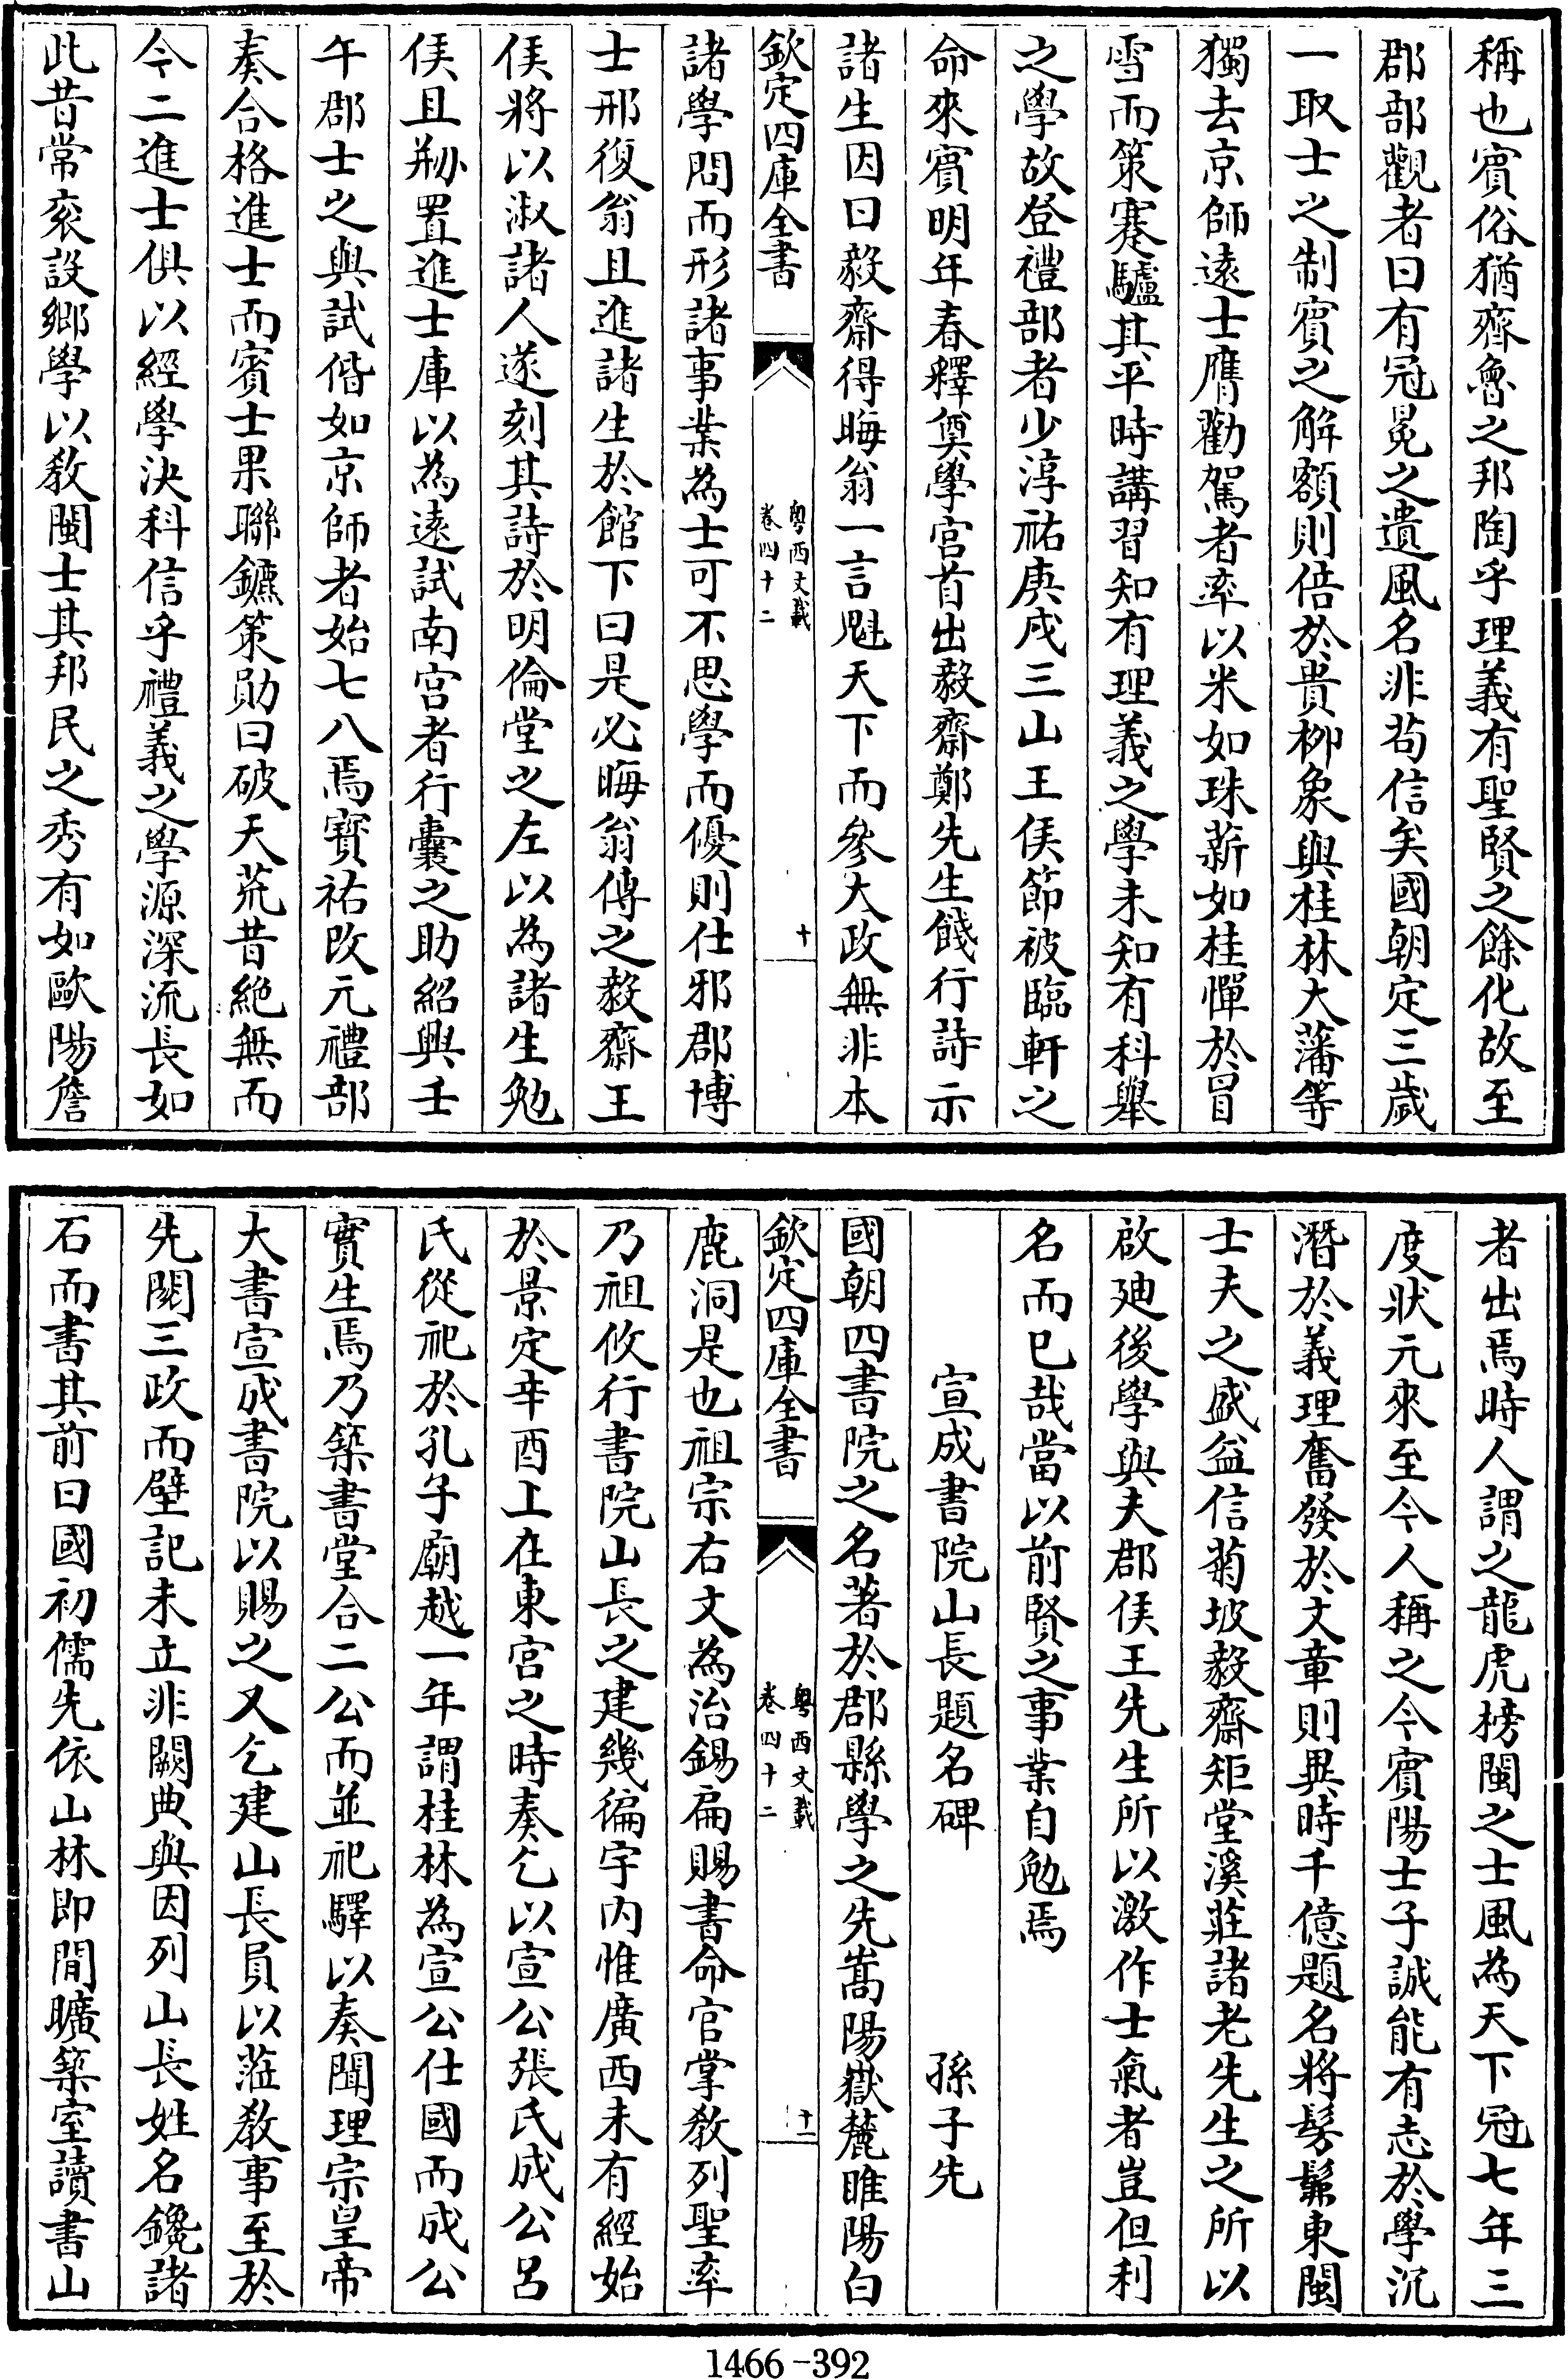 稱也賓俗猶齊魯之邦陶乎理義有聖賢之餘化故至
郡部觀者曰有冠冕之遺風名非茍信矣國朝定三歲
一取士之制賓之解額則倍於貴栁象與桂林大藩等
獨去京師遠士膺勸駕者率以米如珠薪如桂憚於冒
雪而策蹇驢其平時講習知有理義之學未知有科舉
之學故登禮部者少淳祐庚戌三山王侯節被臨軒之
命來賓明年春釋奠學宫首出毅齋鄭先生餞行詩示
諸生因曰毅齋得晦翁一言魁天下而參大政無非本
欽定四庫全書
粤西文載
卷四十二
十
諸學問而形諸事業為士可不思學而優則仕邪郡博
士邢復翁且進諸生於館下曰是必晦翁傳之毅齋王
侯將以淑諸人遂刻其詩於明倫堂之左以為諸生勉
侯且剙置進士庫以為遠試南宫者行囊之助紹興壬
午郡士之與試偕如京師者始七八焉寳祐改元禮部
奏合格進士而賓士果聯鑣策勛曰破天荒昔絶無而
今二進士俱以經學決科信乎禮義之學源深流長如
此昔常衮設鄉學以教閩士其邦民之秀有如歐陽詹
者出焉時人謂之龍虎榜閩之士風為天下冠七年三
度狀元來至今人稱之今賓陽士子誠能有志於學沉
潛於義理奮發於文章則異時千億題名將髣髴東閩
士夫之盛益信菊坡毅齋矩堂溪莊諸老先生之所以
啟廸後學與夫郡侯王先生所以激作士氣者豈但利
名而已哉當以前賢之事業自勉焉
宣成書院山長題名碑　孫子先
國朝四書院之名著於郡縣學之先嵩陽嶽麓睢陽白
欽定四庫全書
粤西文載
卷四十二
十一
鹿洞是也祖宗右文為治錫扁賜書命官掌教列聖率
乃祖攸行書院山長之建幾徧宇内惟廣西未有經始
於景定辛酉上在東宫之時奏乞以宣公張氏成公呂
氏從祀於孔子廟越一年謂桂林為宣公仕國而成公
實生焉乃築書堂合二公而並祀驛以奏聞理宗皇帝
大書宣成書院以賜之又乞建山長員以蒞教事至於
先閱三政而壁記未立非闕典與因列山長姓名鑱諸
石而書其前曰國初儒先依山林即閒曠築室讀書山
1466-392